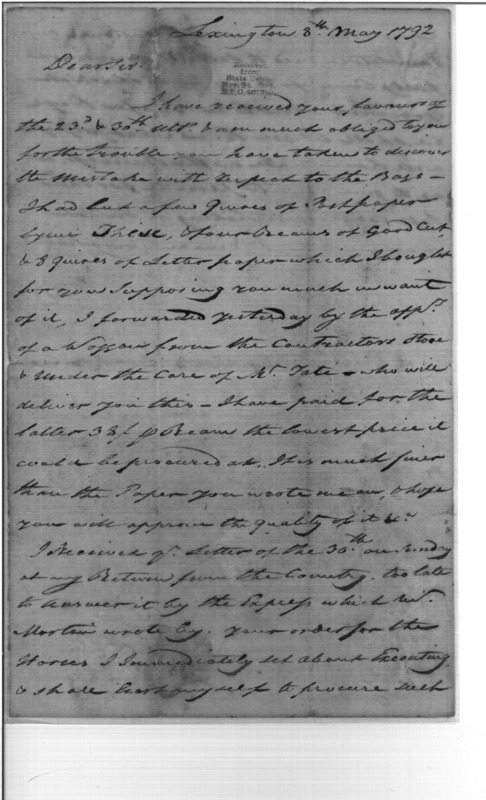 Lexington 8th May 1792
Dear Sir
Received
from
State De
Nov. 24
I have received your favours of
the 23d & 30th ultо & am much obliged to you
for the trouble you have taken to discover
the Mistake with respect to the Bags –
I had but a few Quires of Post paper
by me These, & four Reams of Good Cut
& 3 quires of Letter paper which I bought
for you Supposing you much in want
of it, I forwarded yesterday by the oppy
of a Waggon from the Contractors Store
& Under the Care of Mr. Tate – who will
deliver you this – I have paid for the
latter 33/ p Ream the lowest price it
could be procured at. It is much finer
than the Paper you wrote me on, & hope
you will approve the quality of it &c
I Received yr Letter of the 30th on Sunday
at my Return from the Country, too late
to Answer it by the Express which Mr.
Morton wrote by. Your order for the
Horses I Immediately set about Executing
& shall exert myself to procure such